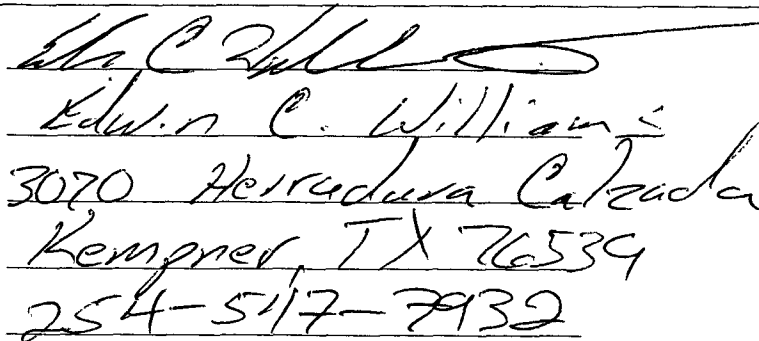 Edwin C. Williams
3070 Herradura Calzada
Kempner, TX 76539
254-547-7932